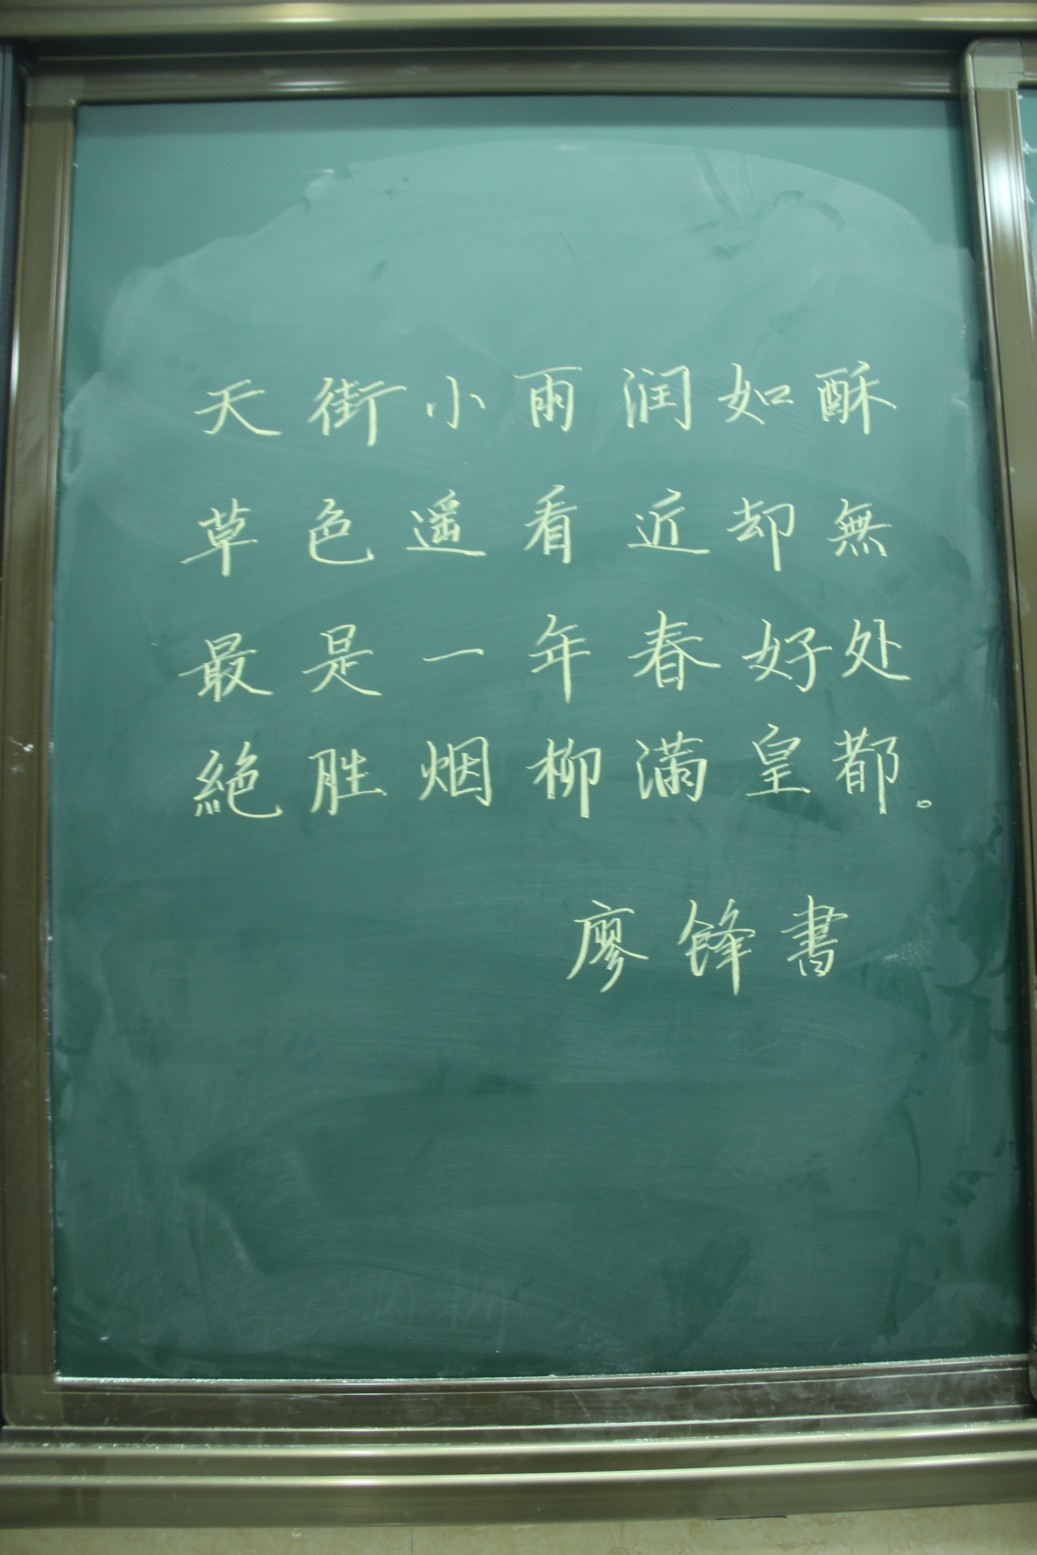 天街小雨润如酥
草色遥看近却無
最是一年春好处
絕胜烟柳满皇都。
廖锋書